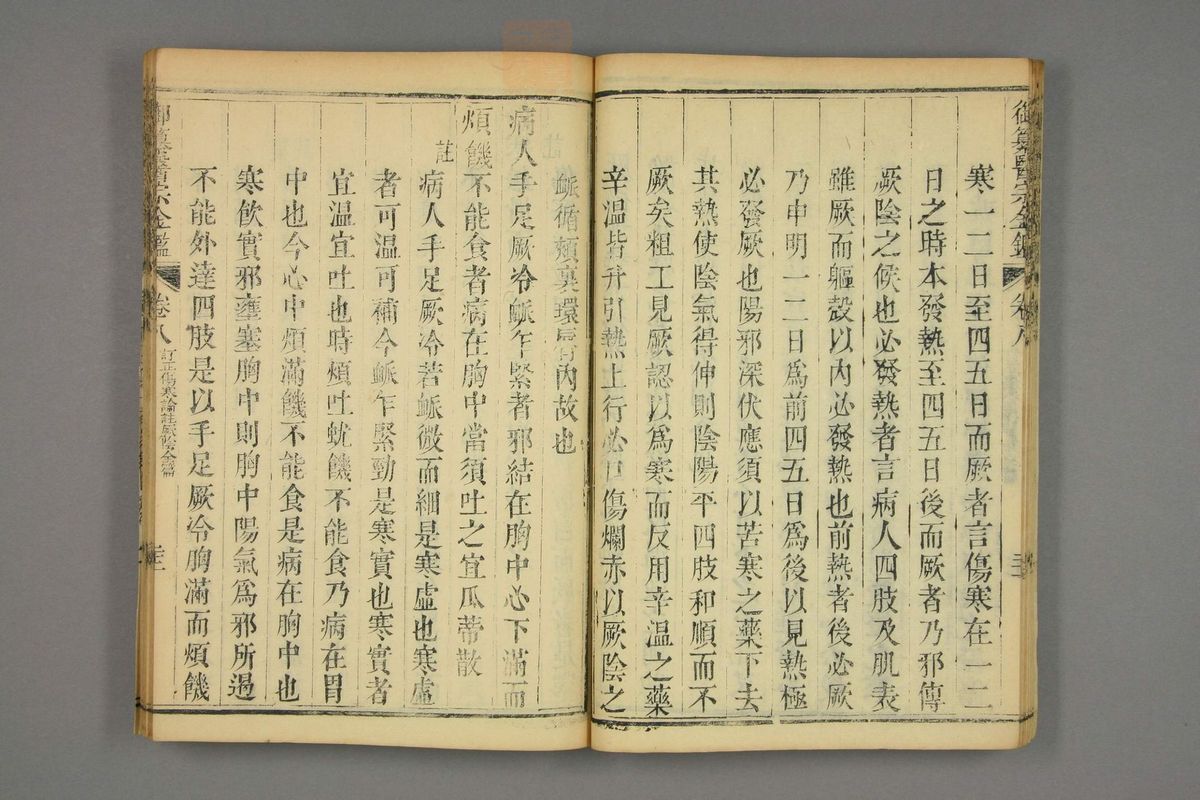 御纂醫宗金鑑 卷八
寒一二日至四五日而厥者言傷寒在一二
日之時本發熱至四五日後而厥者乃邪傳
厥陰之候也必發熱者言病人四肢及肌表
雖厥而軀殼以內必發熱也前熱者後必厥
乃申明一二日為前四五日為後以見熱極
必發厥也陽邪深伏應須以苦寒之藥下去
其熱使陰氣得伸則陰陽平四肢和順而不
厥矣粗工見厥認以為寒而反用辛溫之藥
辛溫皆升引熱上行必口傷爛赤以厥陰之
脈循頰裏環唇內故也
病人手足厥冷脈乍緊者邪結在胸中心下滿而
煩饑不能食者病在胸中當須吐之宜瓜蒂散
註
病人手足厥冷若脈微而細是寒虛也寒虛
者可溫可補今脈乍緊勁是寒實也寒實者
宜溫宜吐也時煩吐蚘饑不能食乃病在胃
中也今心中煩滿饑不能食是病在胸中也
寒飲實邪壅塞胸中則胸中陽氣為邪所遏
不能外達四肢是以手足厥冷胸滿而煩饑
御纂醫宗金鑑 卷八 訂正傷寒論註厥陰全篇